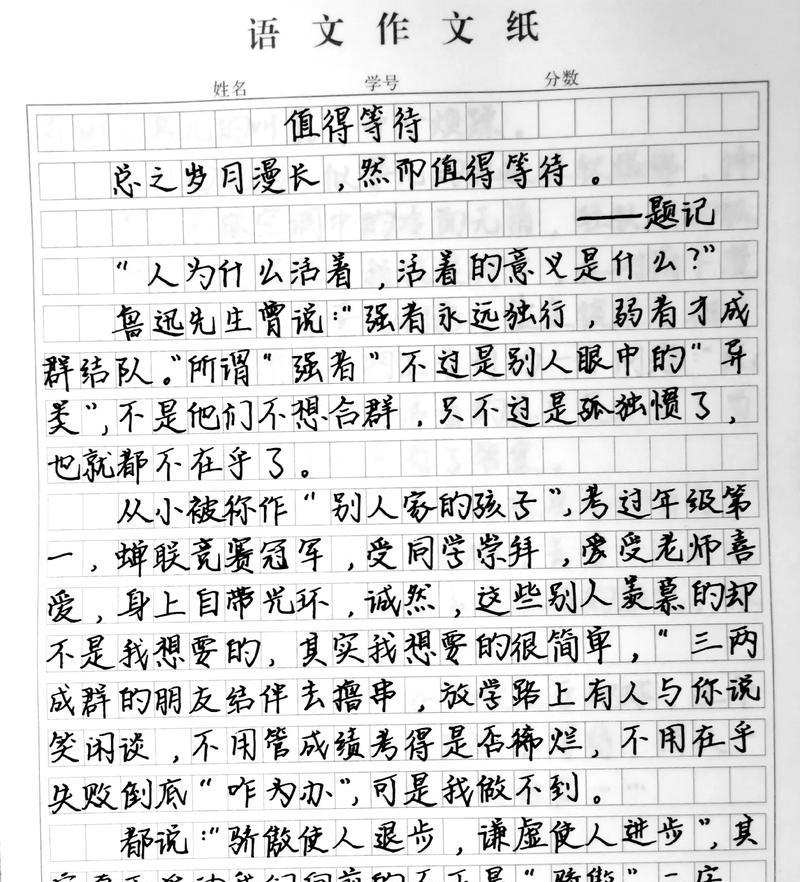 语文作文纸
姓名 学号 分数
值得等待
总之岁月漫长，然而值得等待。
——题记
“人为什么活着，活着的意义是什么？”
鲁迅先生曾说：“强者永远独行，弱者才成
群结队。”所谓“强者”不过是别人眼中的“异
类”，不是他们不想合群，只不过是孤独惯了，
也就都不在乎了。
从小被称作“别人家的孩子”，考过年级第
一，蝉联竞赛冠军，受同学崇拜，爱受老师喜
爱，身上自带光环，诚然，这些别人羡慕的却
不是我想要的，其实我想要的很简单，“三两
成群的朋友结伴去撸串，放学路上有人与你说
笑闲谈，不用管成绩考得是否稀烂，不用在乎
失败倒底“咋为办”，可是我做不到。
都说：“骄傲使人退步，谦虚使人进步”，其